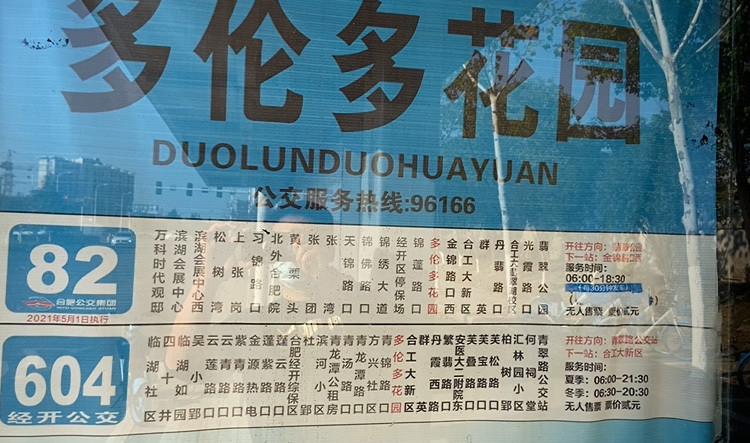 多伦多花园
DUOLUNDUOHUAYUAN
公交服务热线:96166
82
合肥公交集团
2021年5月1日执行
万科时代观邸
滨湖会展中心
滨湖会展中心西
松树岗
上张湾
习锦路口
北外合肥院
黄栗头
张团
张湾
天锦路口
锦佛路口
锦绣大道
经开区停保场
锦莲路口
多伦多花园
金锦路口西
群英
丹翡路口
光霞路口
翡翠公园
开往方向:
下一站:
服务时间:
06:00-18:30
无人售票 票价贰元
604
经开公交
临湖社区
四临家园
吴小郢
云莲路口
云青路口
紫青路口
金源热电
蓬莲路口
合肥经开综保区
社区
滨河小区
青龙潭公租房
青龙潭路口
青汤路口
方兴社区
青锦路口
多伦多花园
合工大新区
群英
丹霞路口
繁翡路口
安医大二附院东
芙蓉路口
芙宝路口
芙松路口
柏油郢
汇林小区
何祠堂
青翠路公交站
开往方向:青翠路公交站
下一站:合工大新区
服务时间:
夏季: 06:00-21:30
冬季: 06:30-20:30
无人售票 票价贰元